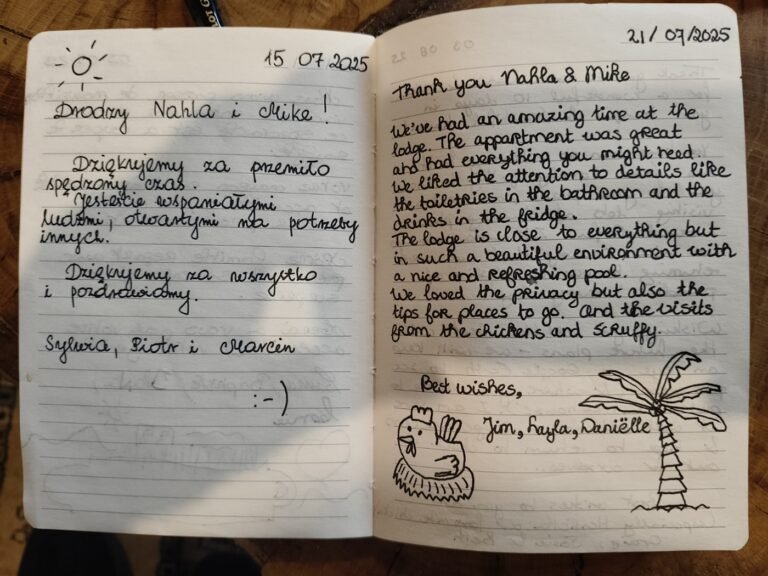 15 07.2025
Drodzy Nahla i Mike!
Dziękujemy za przemiło
spędzony czas.
Jesteście wspaniałymi
ludźmi, otwartymi na potrzeby
innych.
Dziękujemy za wszystko
i pozdrawiamy.
Sylwia, Piotr i Marcin
:-)
21/07/2025
Thank you Nahla & Mike
We've had an amazing time at the
lodge. The appartment was great
and had everything you might need.
We liked the attention to details like
the toiletries in the bathroom and the
drinks in the fridge.
The lodge is close to everything but
in such a beautiful environment with
a nice and refreshing pool.
We loved the privacy but also the
tips for places to go. And the visits
from the chickens and Scruffy.
Best wishes,
Jim, Layla, Daniëlle